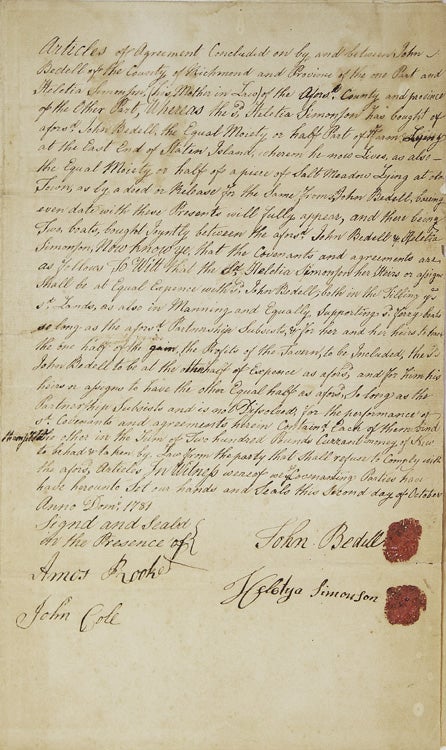 Articles of Agreement Concluded on by and between John
Bedell of the County of Richmond and Province of the one Part and
Heletia Simonson, his Mother in Law of the Afors.d County and province
of the Other Part, Whereas the s.d Heletia Simonson has bought of
afors.d John Bedell, the Equal Moiety or half Part of Lying
at the East End of Staten Island, wherein he now Lives, as also
the Equal Moiety or half of a piece of Salt Meadow Lying at
Town, as by a deed or Release for the Same from John Bedell, bearing
even date with these Presents will fully appear, and there being
Two boats, bought Jointly between the afors.d John Bedell & Heletia
Simonson, Now know ye, that the Covenants and agreements are
as follows To Witt that the s.d Heletia Simonson her Heirs or assigns
Shall be at Equal Expence with s.d John Bedell, both in the Tilling ye
s.d Lands, as also in Manning and Equally Supporting s.d boats
so long as the afors.d Partnership Subsists, & for her and her heirs to have
the one half of the gain, the Profits of the Tavern, to be Included, the s.d
John Bedell to be at the half of Expence as afors.d, and for him his
heirs or assigns to have the other Equal half as afors.d, So long as the
Partnership Subsists and is not Dissolved, for the performance of
s.d Covenants and agreements herein Each of them bind
the other in the Sum of Two hundred Pounds Currant money of
to be had & taken by Law from the party that Shall refuse to Comply with
the afors.d Articles, In Witness whereof we Covenanting Parties have
have hereunto Set our hands and Seals this Second day of October
Anno Dom. 1781
Signd and Seald
in the Presence of
John Bedell
Amos Rooke
Heletya Simonson
John Cole